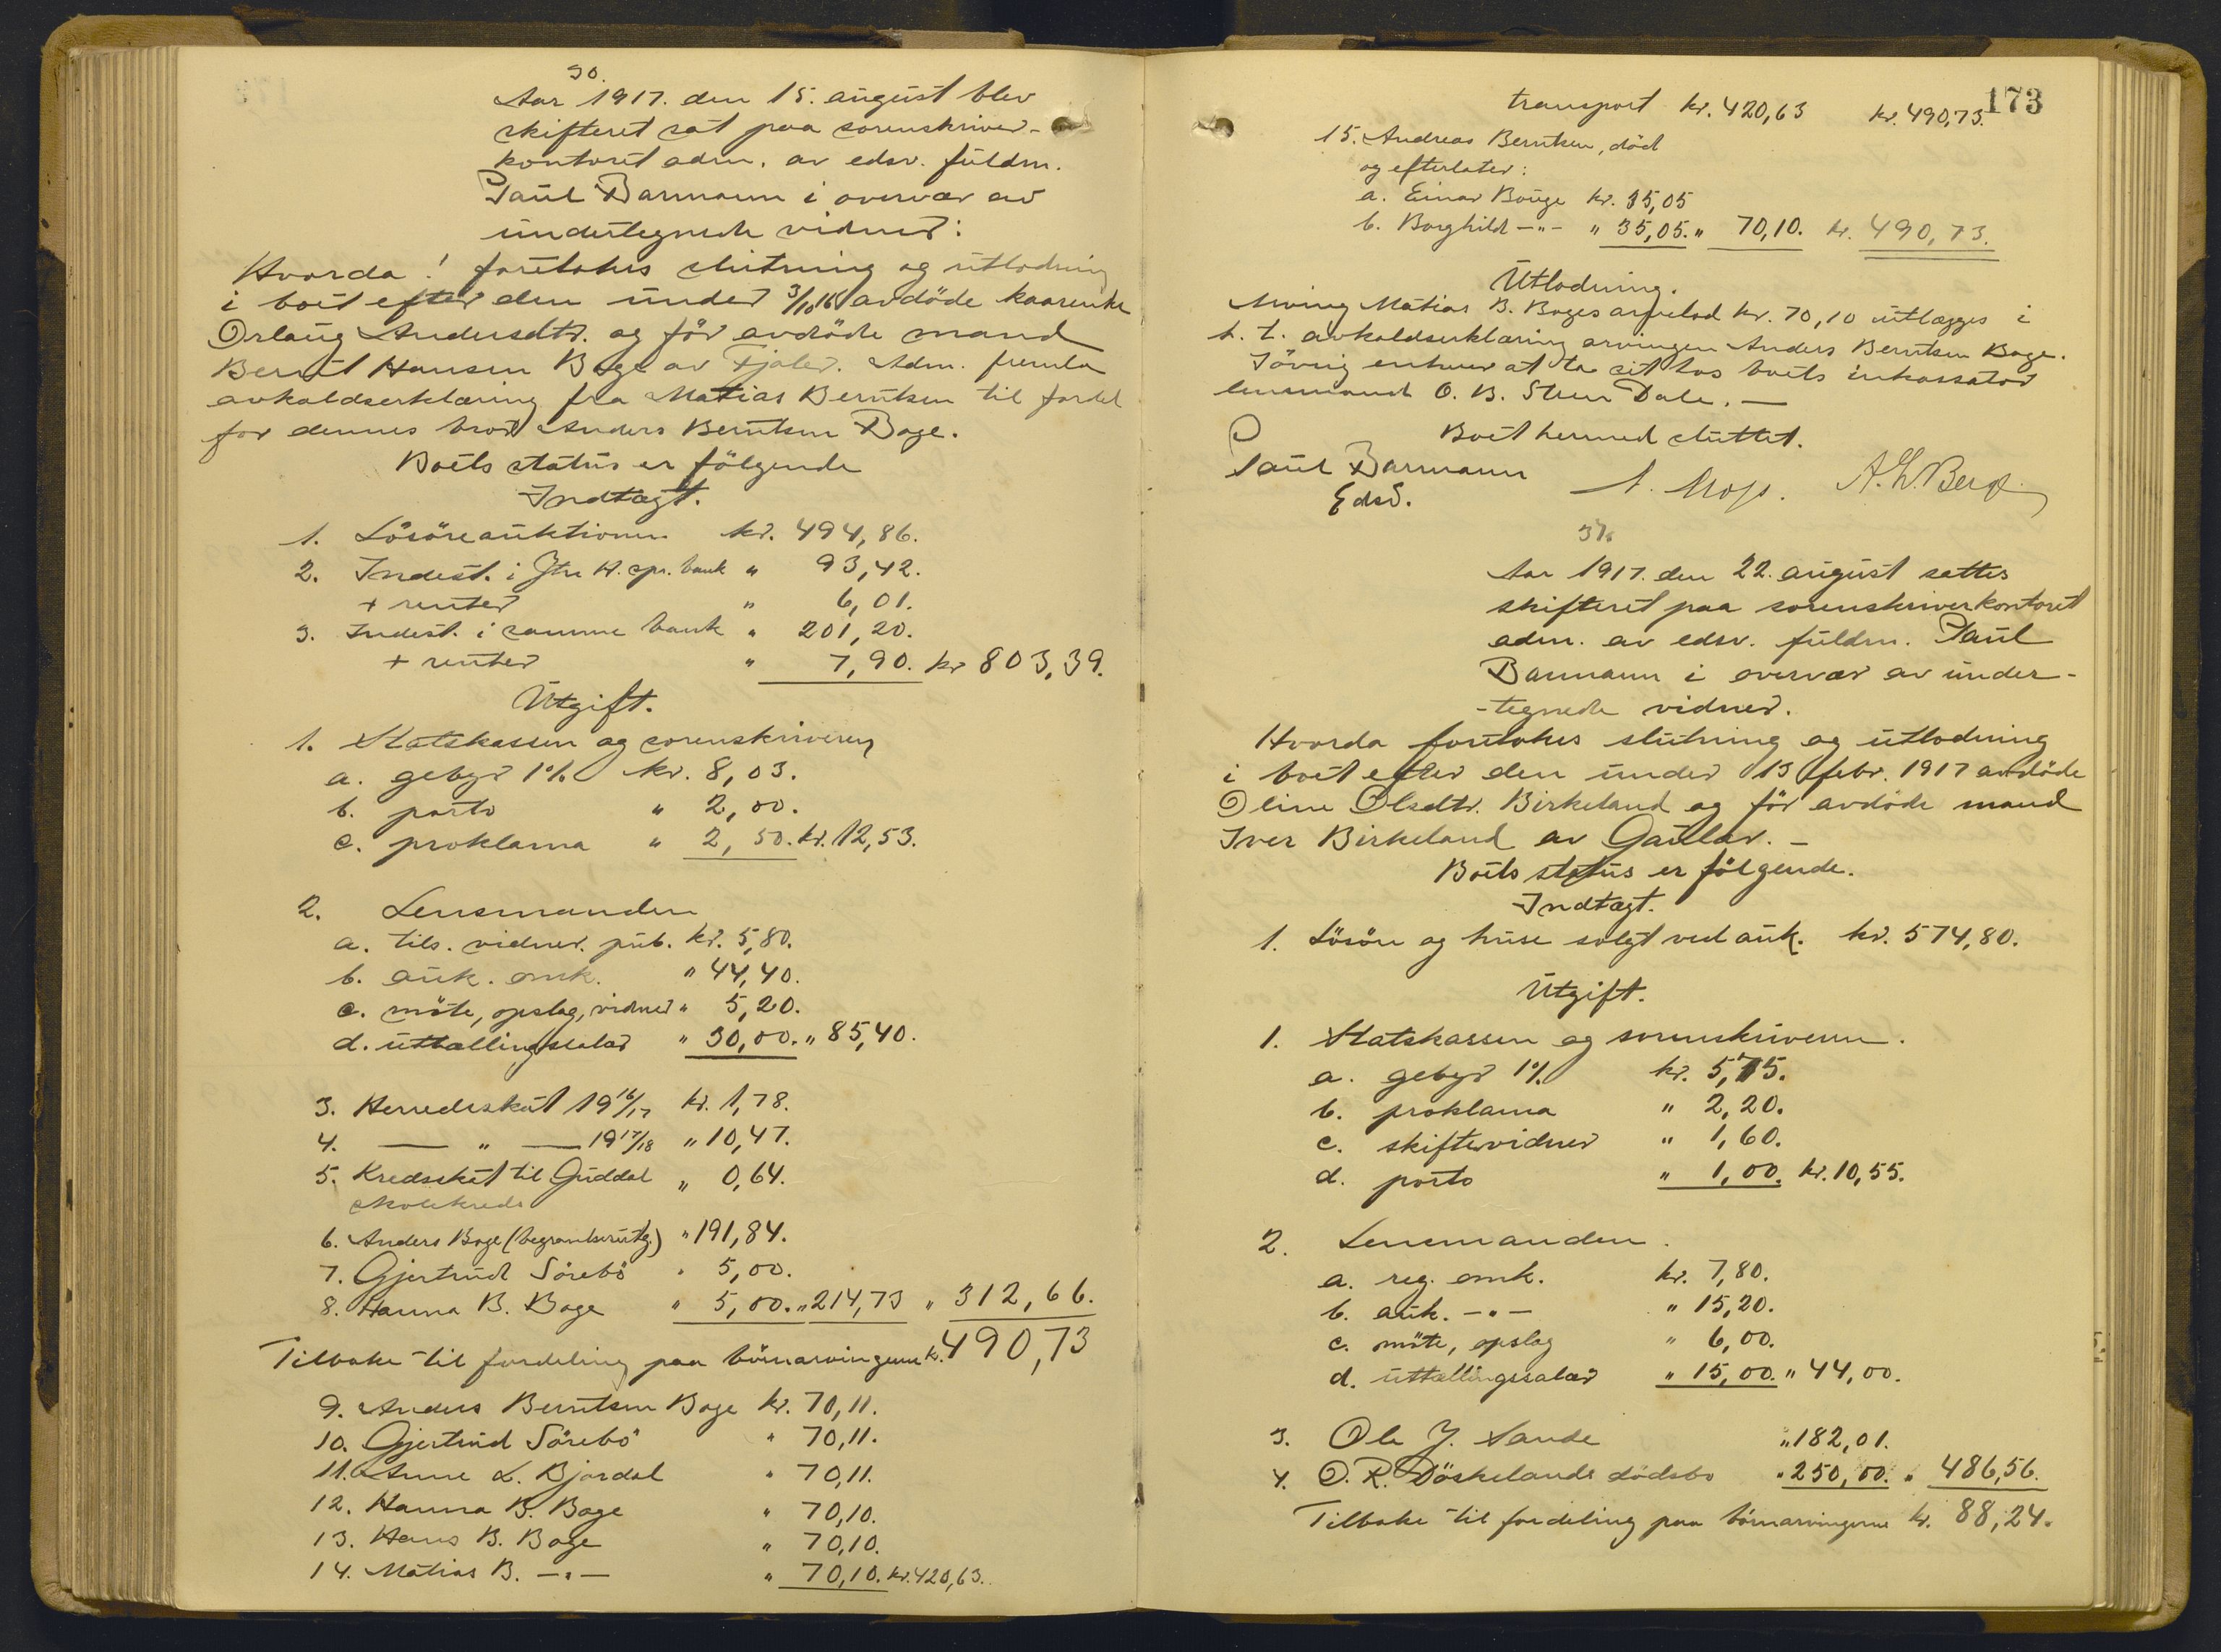 30.
Aar 1917. den 15. august blev
skifteret sat paa sorenskriver-
kontoret adm. av edsv. fuldm.
Paul Barmann i overvær av
undertegnede vidner:
Hvorda! foretokes slutning og utlodning
i boet efter den under 3/10 16 avdöde kaarenke
Orlaug Andersdtr. og för avdöde mand
Bernt Hansen Boge av Fjaler. Adm. fremla
avkaldserklæring fra Matias Berntsen til fordel
for dennes bror Anders Berntsen Boge.
Boets status er fölgende
Indtægt.
1. Lösöreauktionen kr. 494,86.
2. Indest. i Ytre H. spr. bank " 93,42.
+ renter " 6,01.
3. Indest. i samme bank " 201,20.
+ renter " 7,90. kr 803,39.
Utgift.
1. Statskassen og sorenskriveren
a. gebyr 1% kr. 8,03.
b. porto " 2,00.
c. proklama " 2,50. kr. 12,53.
2. Lensmanden
a. tils. vidner. pub. kr. 5,80.
b. auk. omk. " 44,40.
c. möte, opslag, vidner " 5,20.
d. uttællingssalær " 30,00. " 85,40.
3. Herredsskat 19 16/17 kr. 1,78.
4. — " — 19 17/18 " 10,47.
5. Kredsskat til Guddal " 0,64.
skolekreds
6. Anders Boge (begravelsesutg.) " 191,84.
7. Gjertrud Sörebö " 5,00.
8. Hanna B. Boge " 5,00. " 214,73 " 312,66.
Tilbake til fordeling paa börnarvingerne kr. 490,73
9. Anders Berntsen Boge kr. 70,11.
10. Gjertrud Sörebö " 70,11.
11. Anne L. Bjordal " 70,11.
12. Hanna B. Boge " 70,10.
13. Hans B. Boge " 70,10.
14. Matias B. -"- " 70,10. kr. 420,63.
173
transport kr. 420,63 kr. 490,73.
15. Andreas Berntsen, död
og efterlater:
a. Einar Bouge kr. 35,05
b. Borghild -"- " 35,05. " 70,10. kr. 490,73.
Utlodning.
Arving Matias B. Boges arvelod kr. 70,10 utlægges i
h. t. avkaldserklæring arvingen Anders Berntsen Boge.
Iövrig enhver at ta sit hos boets inkassator
lensmand O. B. Steen Dale. —
Boet hermed sluttet.
Paul Barmann
Edsv.
A. L. Berg.
31.
Aar 1917. den 22. august sattes
skifteret paa sorenskriverkontoret
adm. av edsv. fuldm. Paul
Barmann i overvær av under-
-tegnede vidner.
Hvorda foretokes slutning og utlodning
i boet efter den under 13 febr. 1917 avdöde
Oline Olsdtr. Birkeland og för avdöde mand
Iver Birkeland av Gaular. —
Boets status er fölgende.
Indtægt.
1. Lösöre og huse solgt ved auk. kr. 574,80.
Utgift.
1. Statskassen og sorenskriveren.
a. gebyr 1% kr. 5,75.
b. proklama " 2,20.
c. skiftevidner " 1,60.
d. porto " 1,00. kr. 10,55.
2. Lensmanden.
a. reg. omk. kr. 7,80.
b. auk. -"- " 15,20.
c. möte, opslag " 6,00.
d. uttællingssalær " 15,00. " 44,00.
3. Ole J. Sande " 182,01.
4. O. R. Döskelands dödsbo " 250,00. " 486,56.
Tilbake til fordeling paa börnarvingerne kr. 88,24.